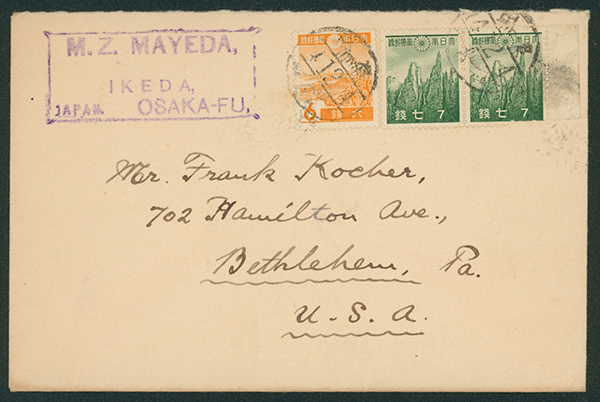 M. Z. MAYEDA,
IKEDA,
JAPAN. OSAKA-FU,
大日本帝國郵便
6 錢六
大日本帝國郵便
錢七7
大日本帝國郵便
錢七7
Mr. Frank Kocher,
702 Hamilton Ave.,
Bethlehem, Pa.
U. S. A.